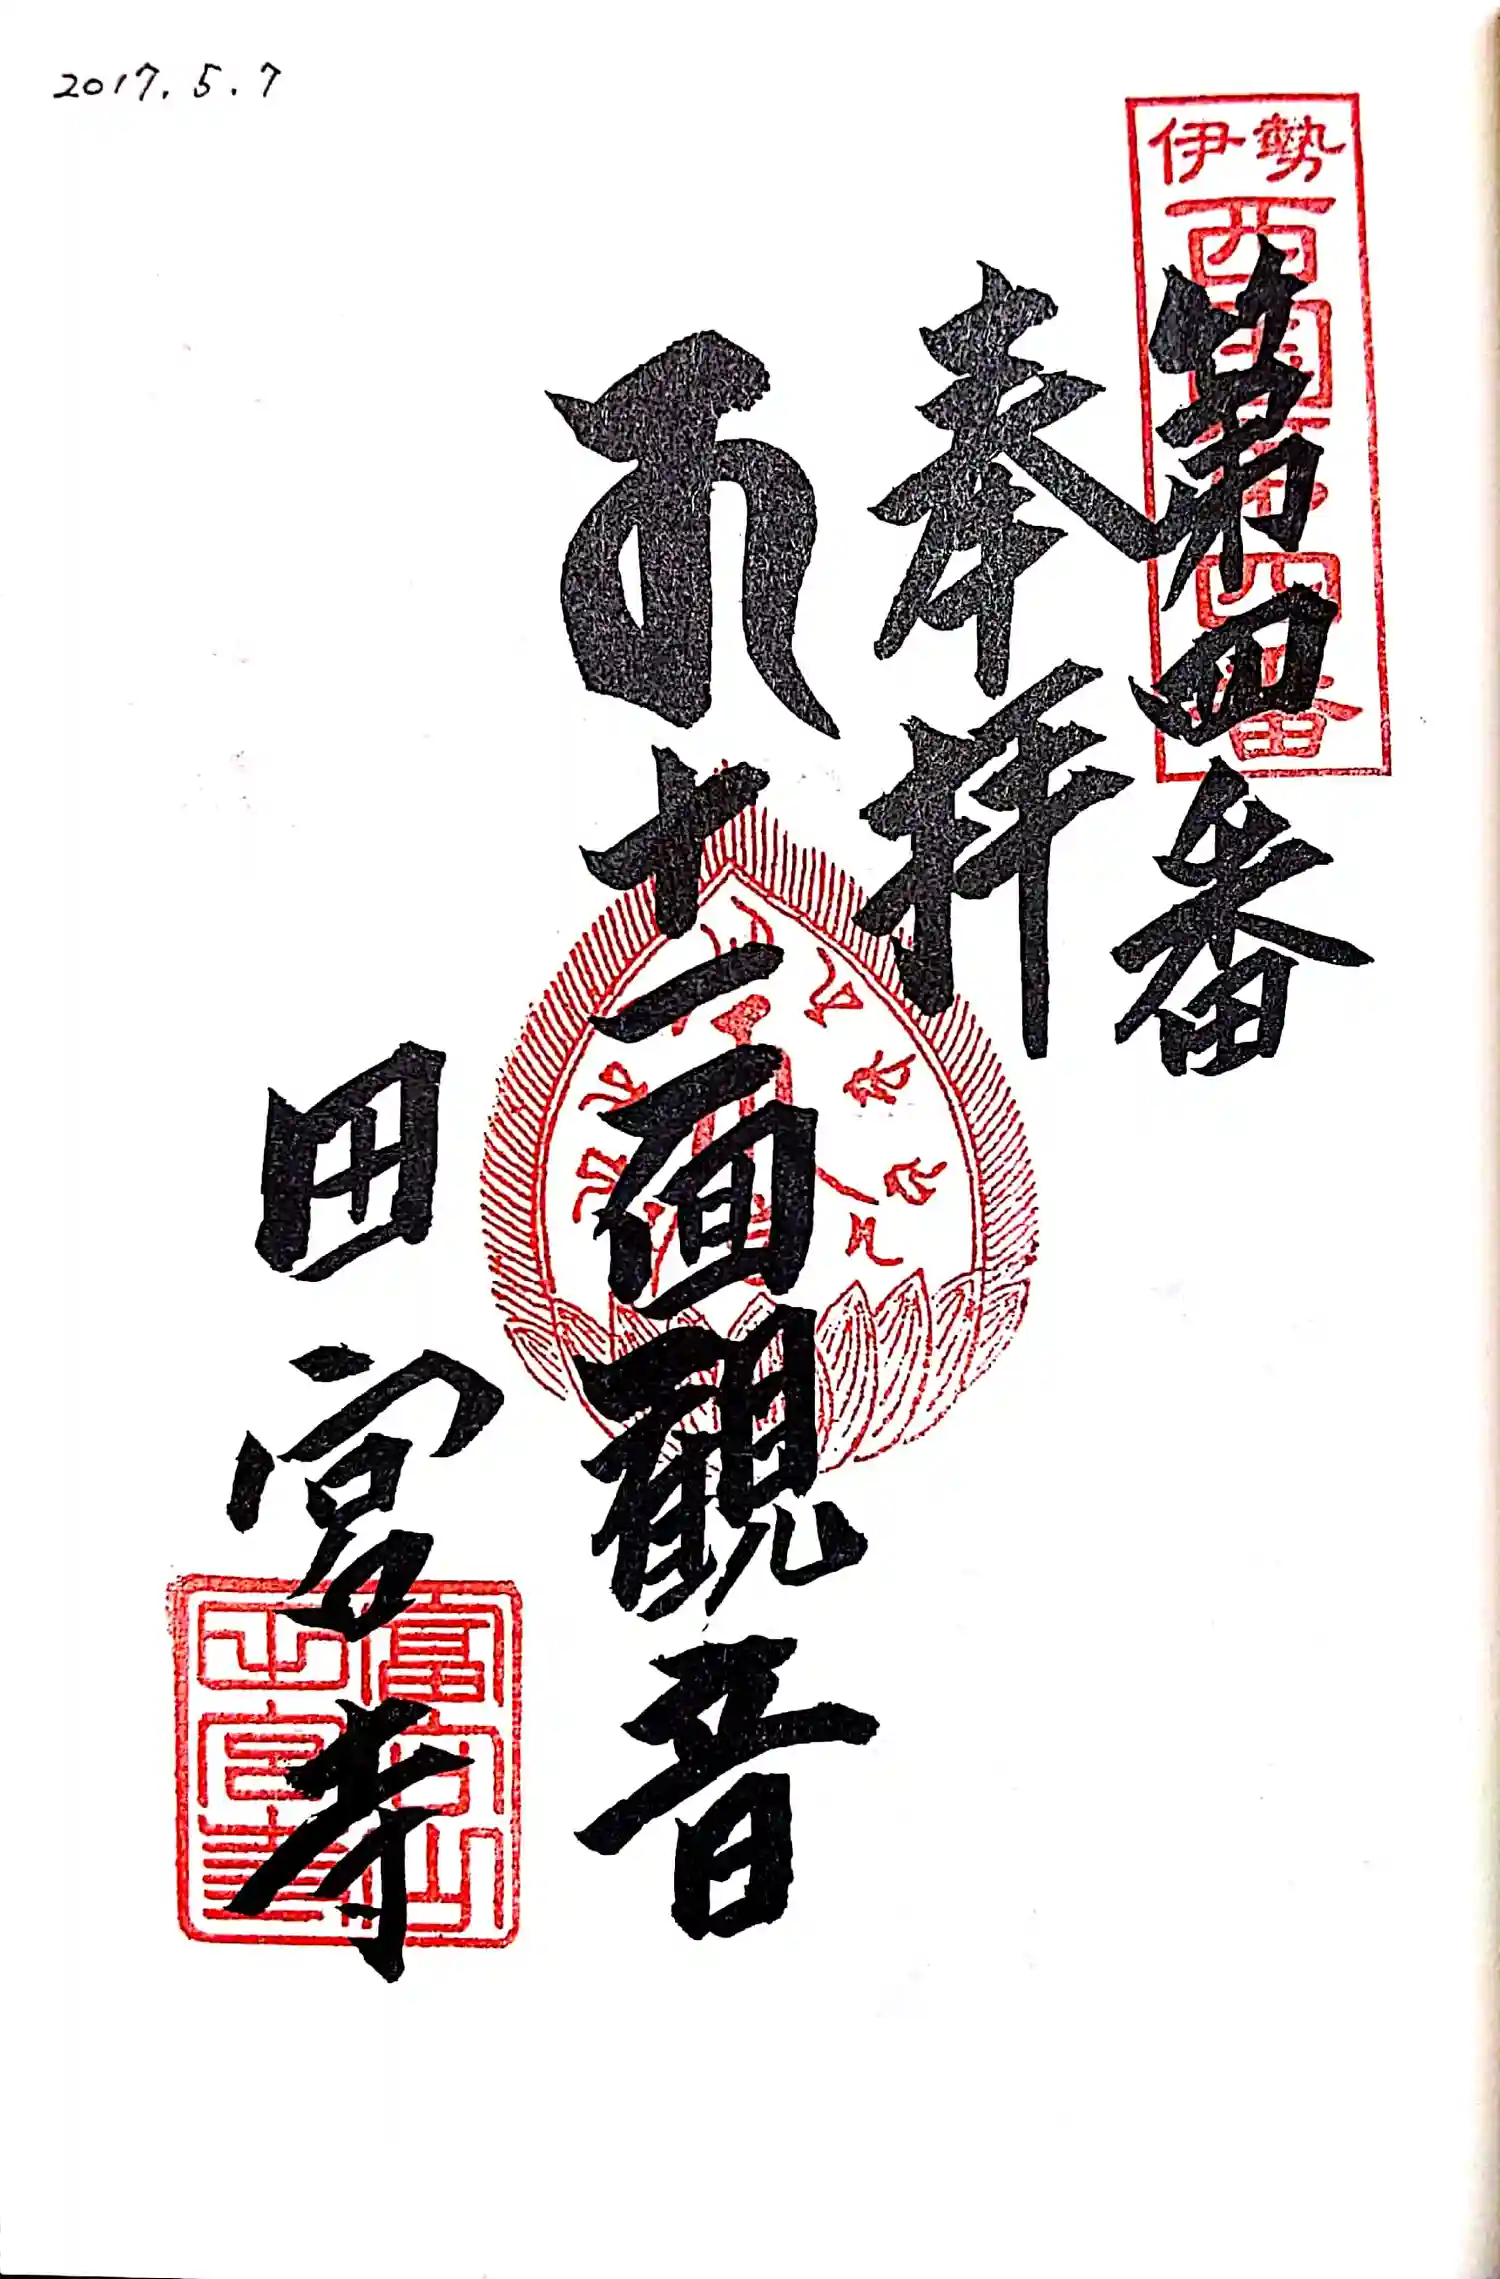 2017.5.7
伊勢
西国第四番
第四番
奉拝
十一面観音
田宮寺
富向山
田宮寺